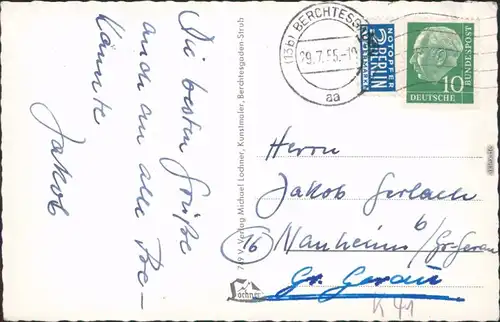 Die besten Grüße
auch an alle Be-
kannte
Jakob
7491 Verlag Michael Lochner, Kunstmaler, Berchtesgaden-Strub
Lochner
(13b) BERCHTESGADEN
29.7.55.-19
aa
NOTOPFER
2 BERLIN
STEUERMARKE
10
DEUTSCHE
BUNDESPOST
Herrn
Jakob Gerlach
16
Nauheim b/Gr-Gerau
Gr. Gerau
K 41